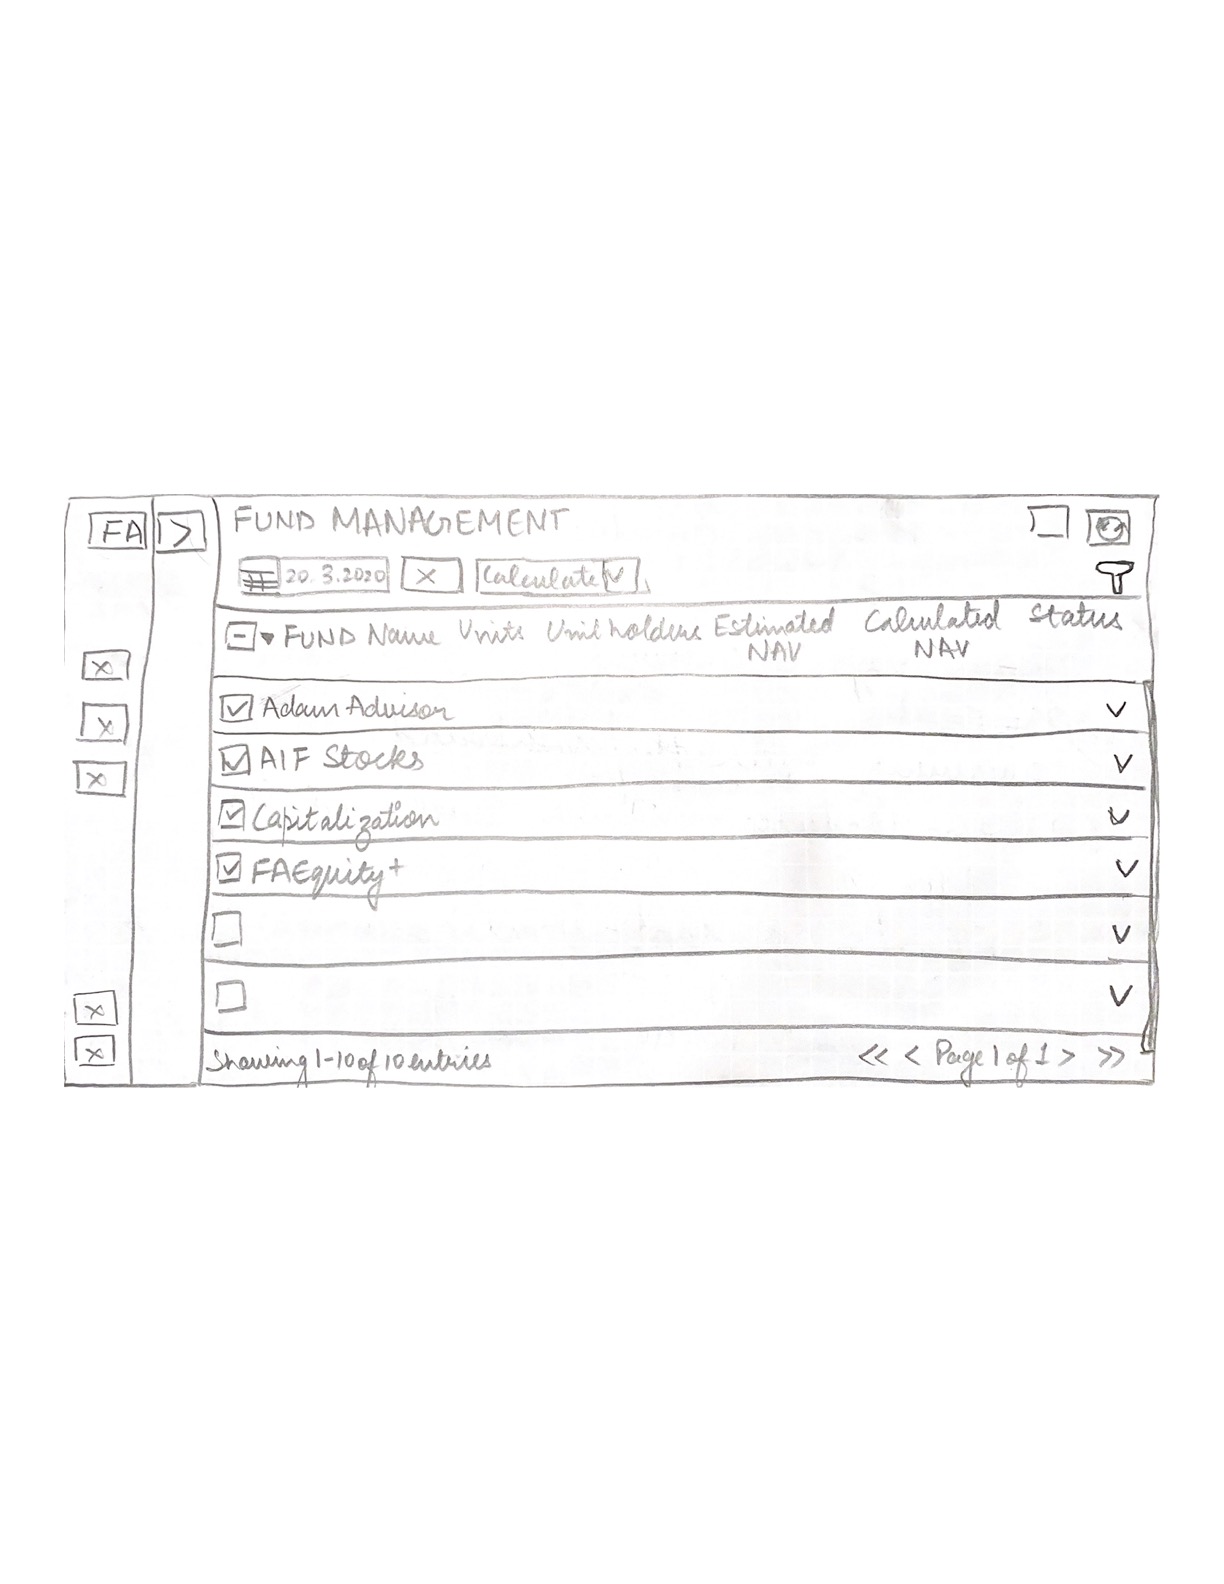 FA > FUND MANAGEMENT
20.3.2020 Calculate
FUND Name Units Unit holders Estimated NAV Calculated NAV Status
Adam Advisor
AIF Stocks
Capitalization
FAEquity+
Showing 1-10 of 10 entries << < Page 1 of 1 > >>